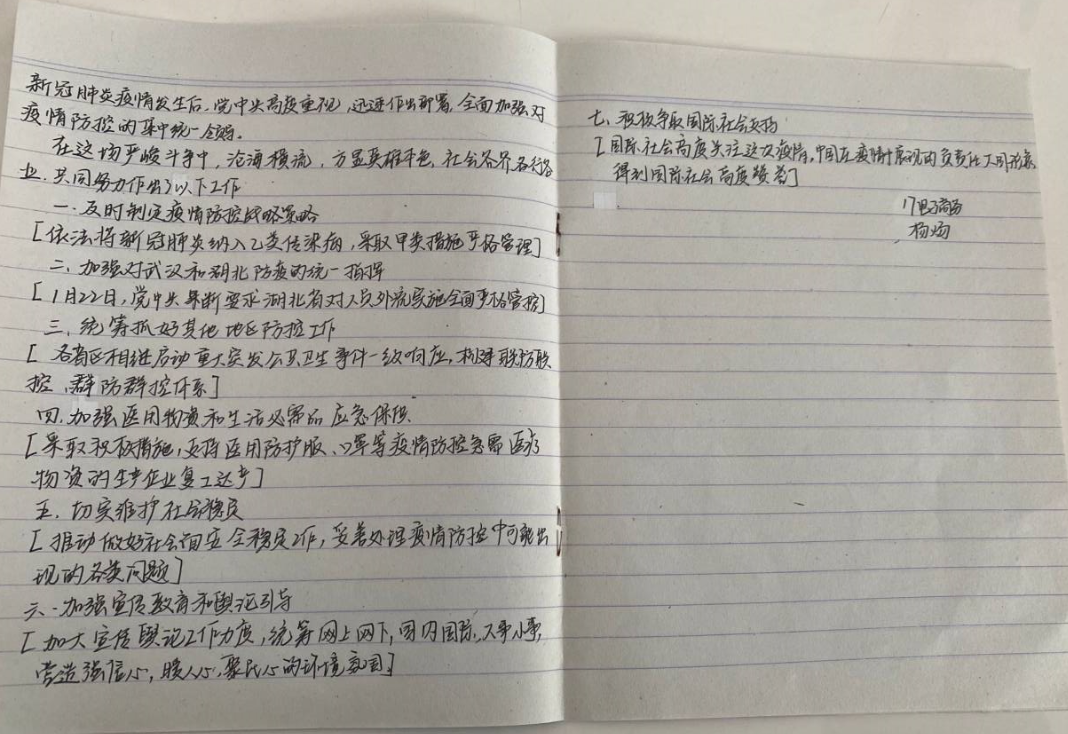 新冠肺炎疫情发生后,党中央高度重视,迅速作出部署,全面加强对
疫情防控的集中统一领导。
在这场严峻斗争中,沧海横流,方显英雄本色,社会各界各行各
业,共同努力作出了以下工作
一.及时制定疫情防控战略策略
[依法将新冠肺炎纳入乙类传染病,采取甲类措施严格管理]
二.加强对武汉和湖北防疫的统一指挥
[1月22日,党中央果断要求湖北省对人员外流实施全面严格管控]
三.统筹抓好其他地区防控工作
[各省区相继启动重大突发公共卫生事件一级响应,构建联防联
控、群防群控体系]
四.加强医用物资和生活必需品应急保障.
[采取积极措施,支持医用防护服、口罩等疫情防控急需医疗
物资的生产企业复工达产]
五.切实维护社会稳定
[推动做好社会面安全稳定工作,妥善处理疫情防控中可能出
现的各类问题]
六.加强宣传教育和舆论引导
[加大宣传舆论工作力度,统筹网上网下,国内国际,大事小事,
营造强信心,暖人心,聚民心的环境氛围]
七、积极争取国际社会支持
[国际社会高度关注这次疫情,中国在疫情中展现的负责任大国形象
得到国际社会高度赞誉]